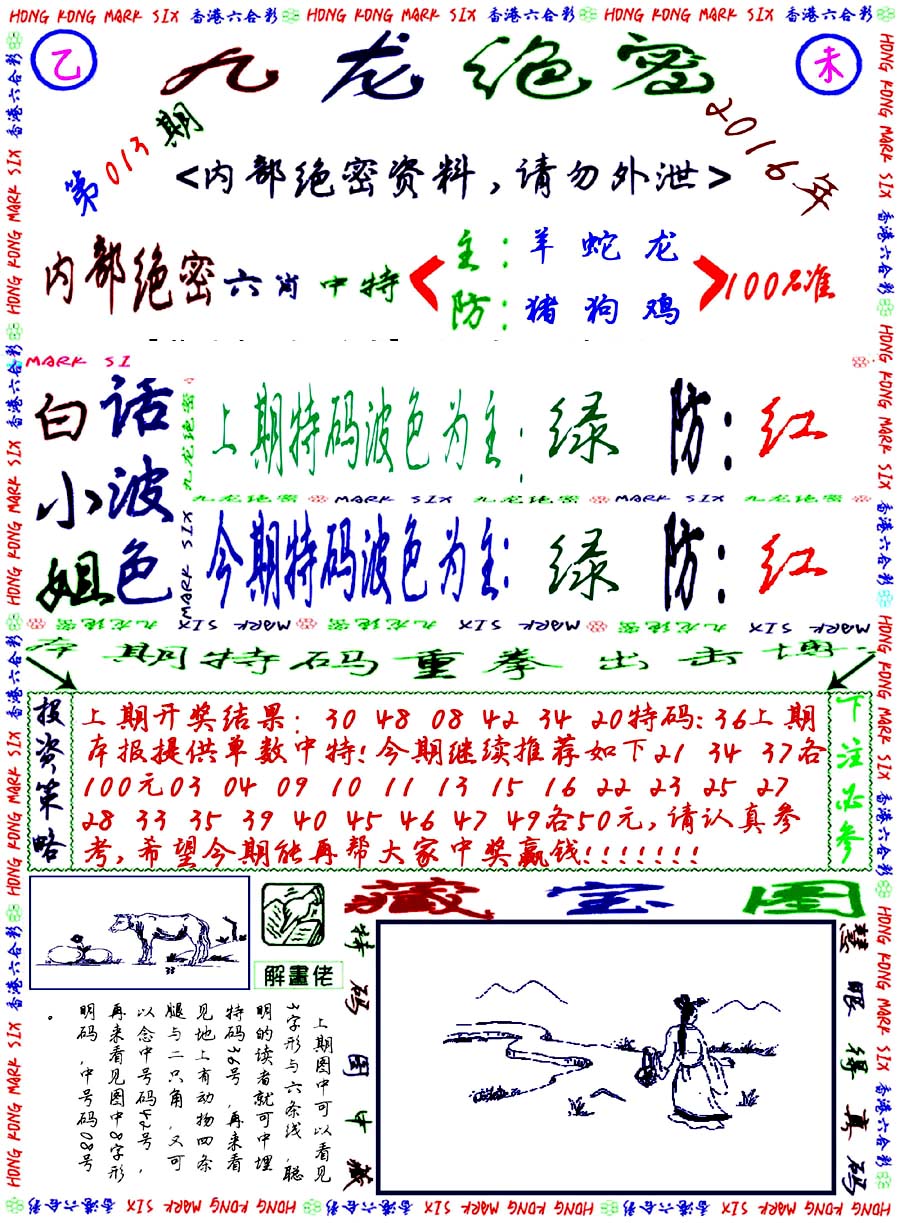 HONG KONG MARK SIX 香港六合彩 HONG KONG MARK SIX 香港六合彩 HONG KONG MARK SIX 香港六合彩
乙
九龙绝密
未
第013期
2016年
<内部绝密资料,请勿外泄>
内部绝密六肖中特
主:羊 蛇 龙
防:猪 狗 鸡
100%准
MARK SI
白话小波姐色
九龙绝密
MARK SIX
上期特码波色为主:绿 防:红
九龙绝密 MARK SIX 九龙绝密 MARK SIX 九龙绝密
今期特码波色为主:绿 防:红
MARK SIX 九龙绝密 MARK SIX 九龙绝密 MARK SIX 九龙绝密
本期特码重拳出击博
投资策略
上期开奖结果: 30 48 08 42 34 20特码:36上期
本报提供单数中特!今期继续推荐如下21 34 37各
100元03 04 09 10 11 13 15 16 22 23 25 27
28 33 35 39 40 45 46 47 49各50元,请认真参
考,希望今期能再帮大家中奖赢钱!!!!!!!
下注必参
33
解畫佬
藏宝图
特码图中藏
慧眼得真码
上期图中可以看见
3字形与六条线,聪
明的读者就可中埋
特码36号,再来看
见地上有动物四条
腿与二只角,又可
以念中号码42号,
再来看见图中8字形
明码,中号码08号
。
HONG KONG MARK SIX 香港六合彩 HONG KONG MARK SIX 香港六合彩 HONG KONG MARK SIX 香港六合彩